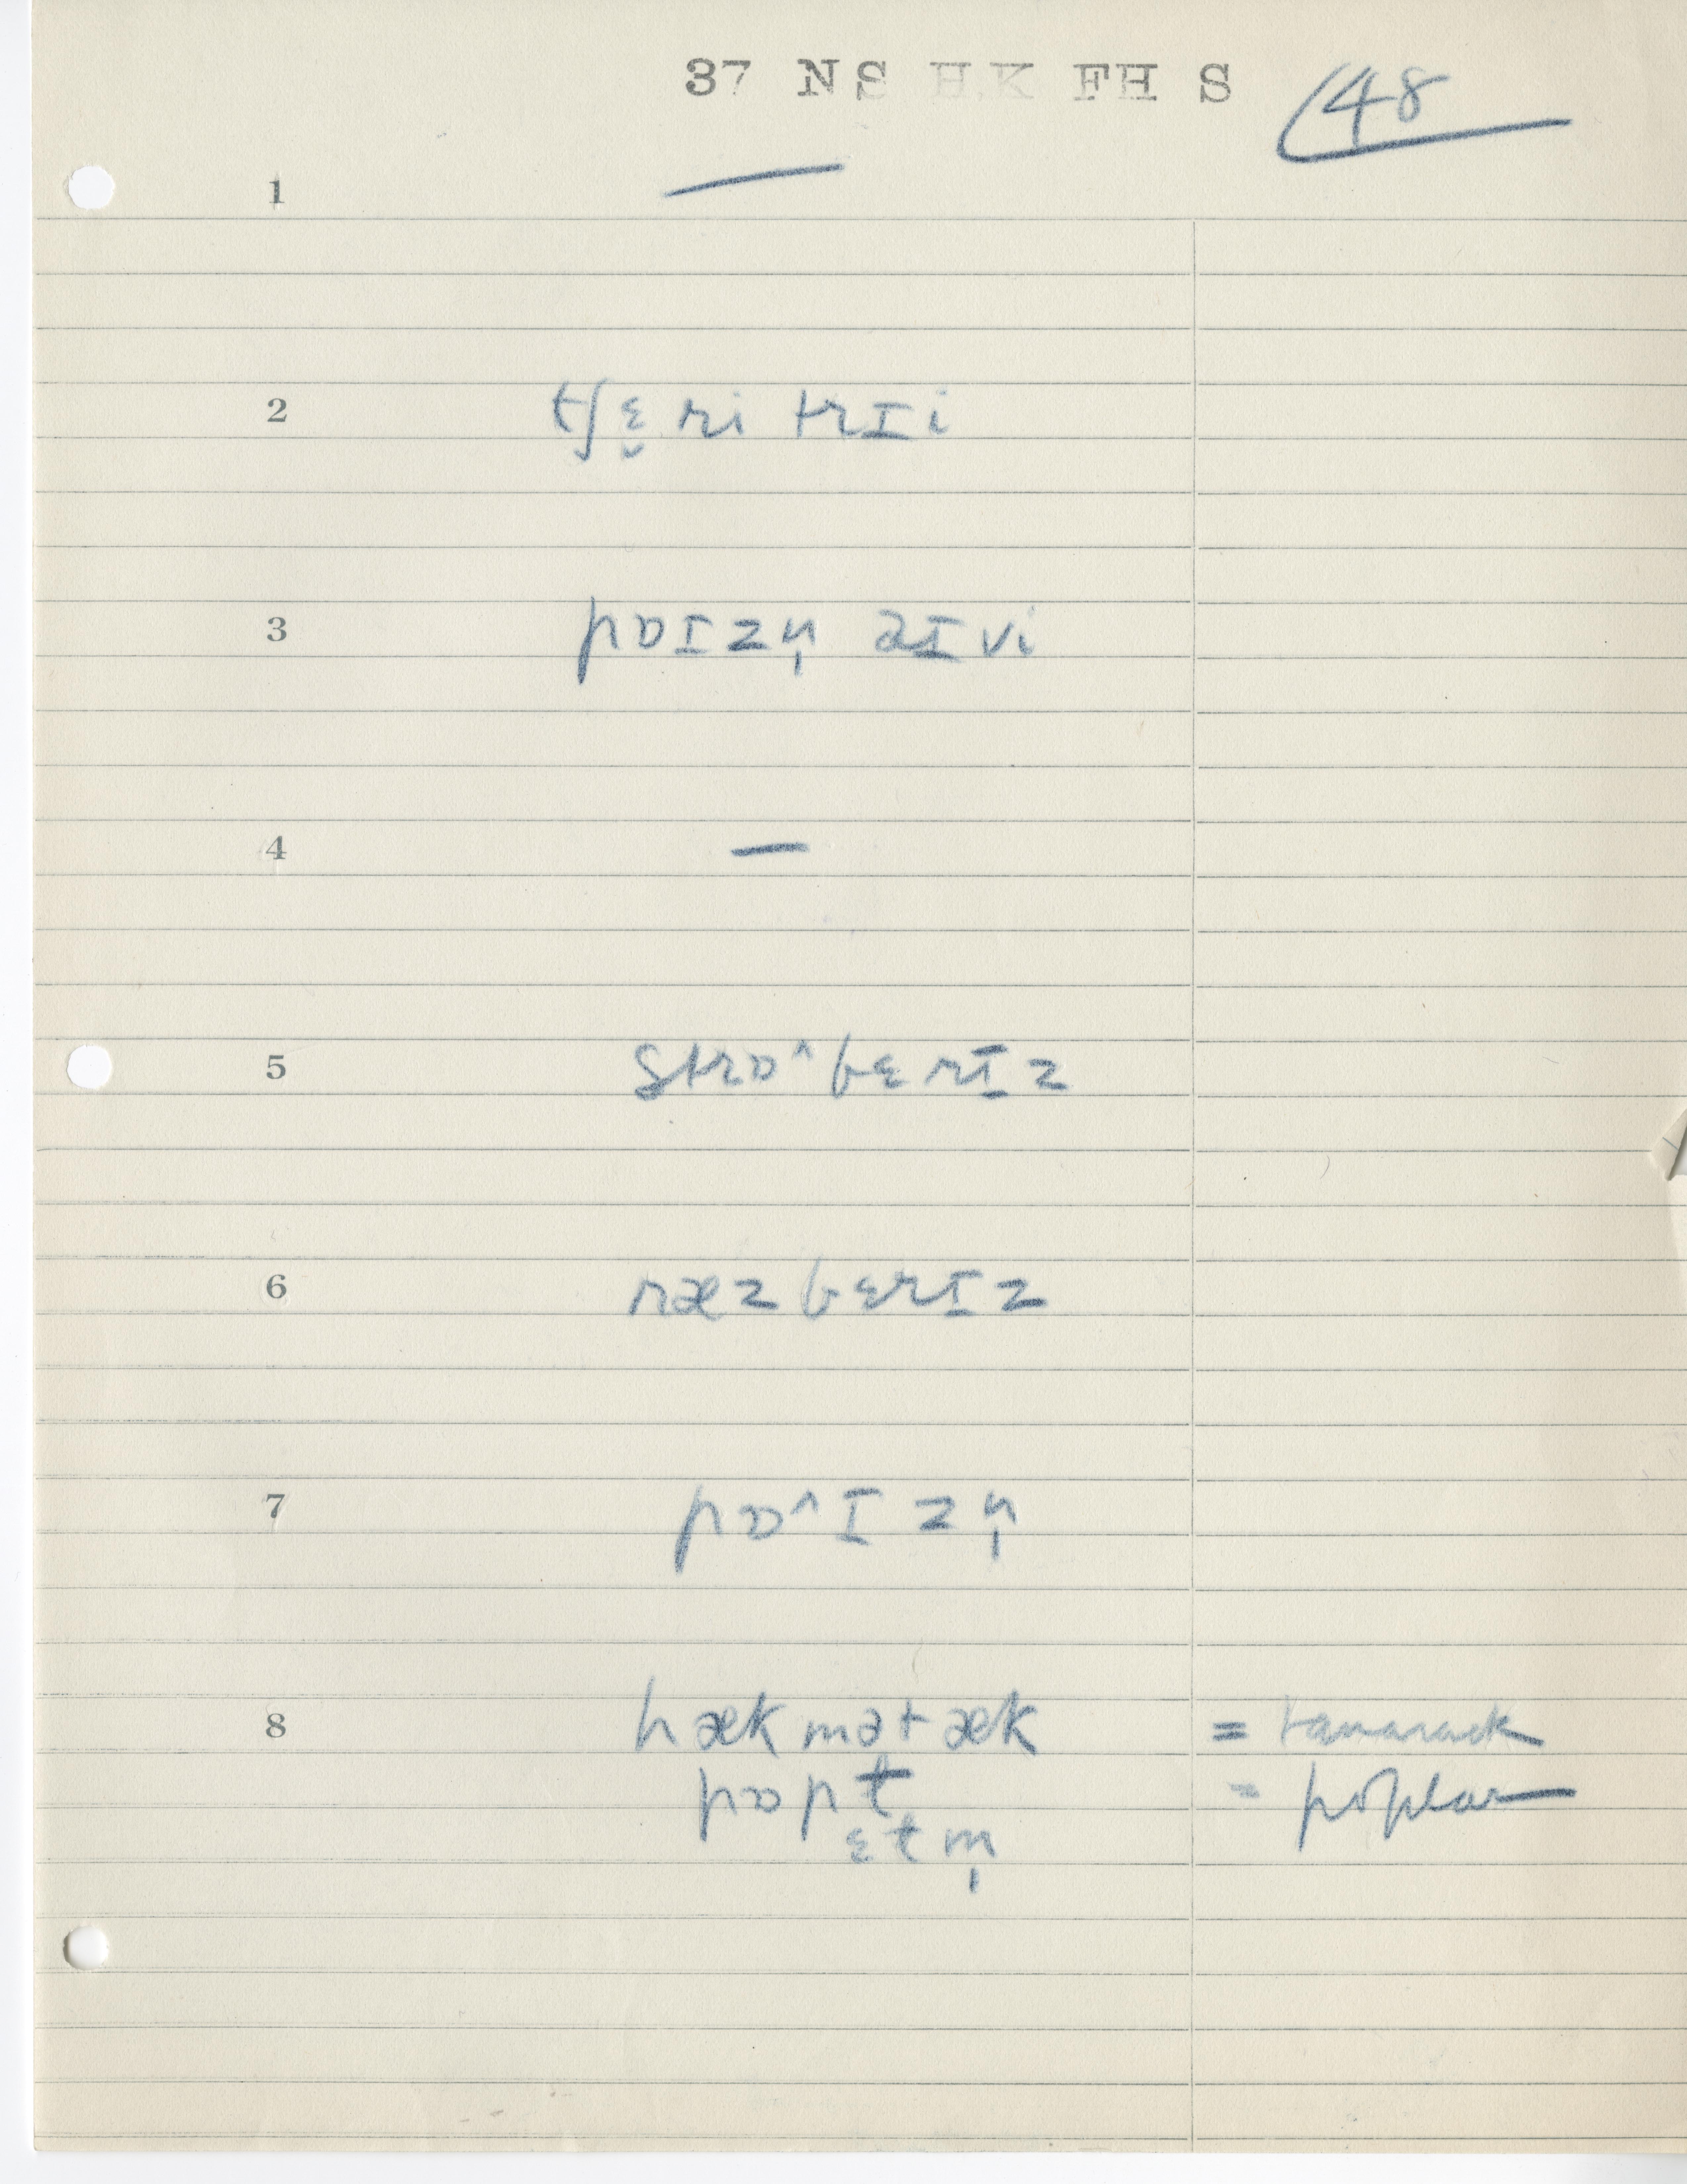 37 NS HK FH S 48
1 —
2 tʃɛ̬ri trɪi
3 pɒɪzn̩ aɪvi
4 —
5 strɒ^bɛrɪz
6 ræzbɛrɪz
7 pɒ^ɪzn̩
8 hækmətæk = tamarack
pɒpt = poplar
ɛtm̩